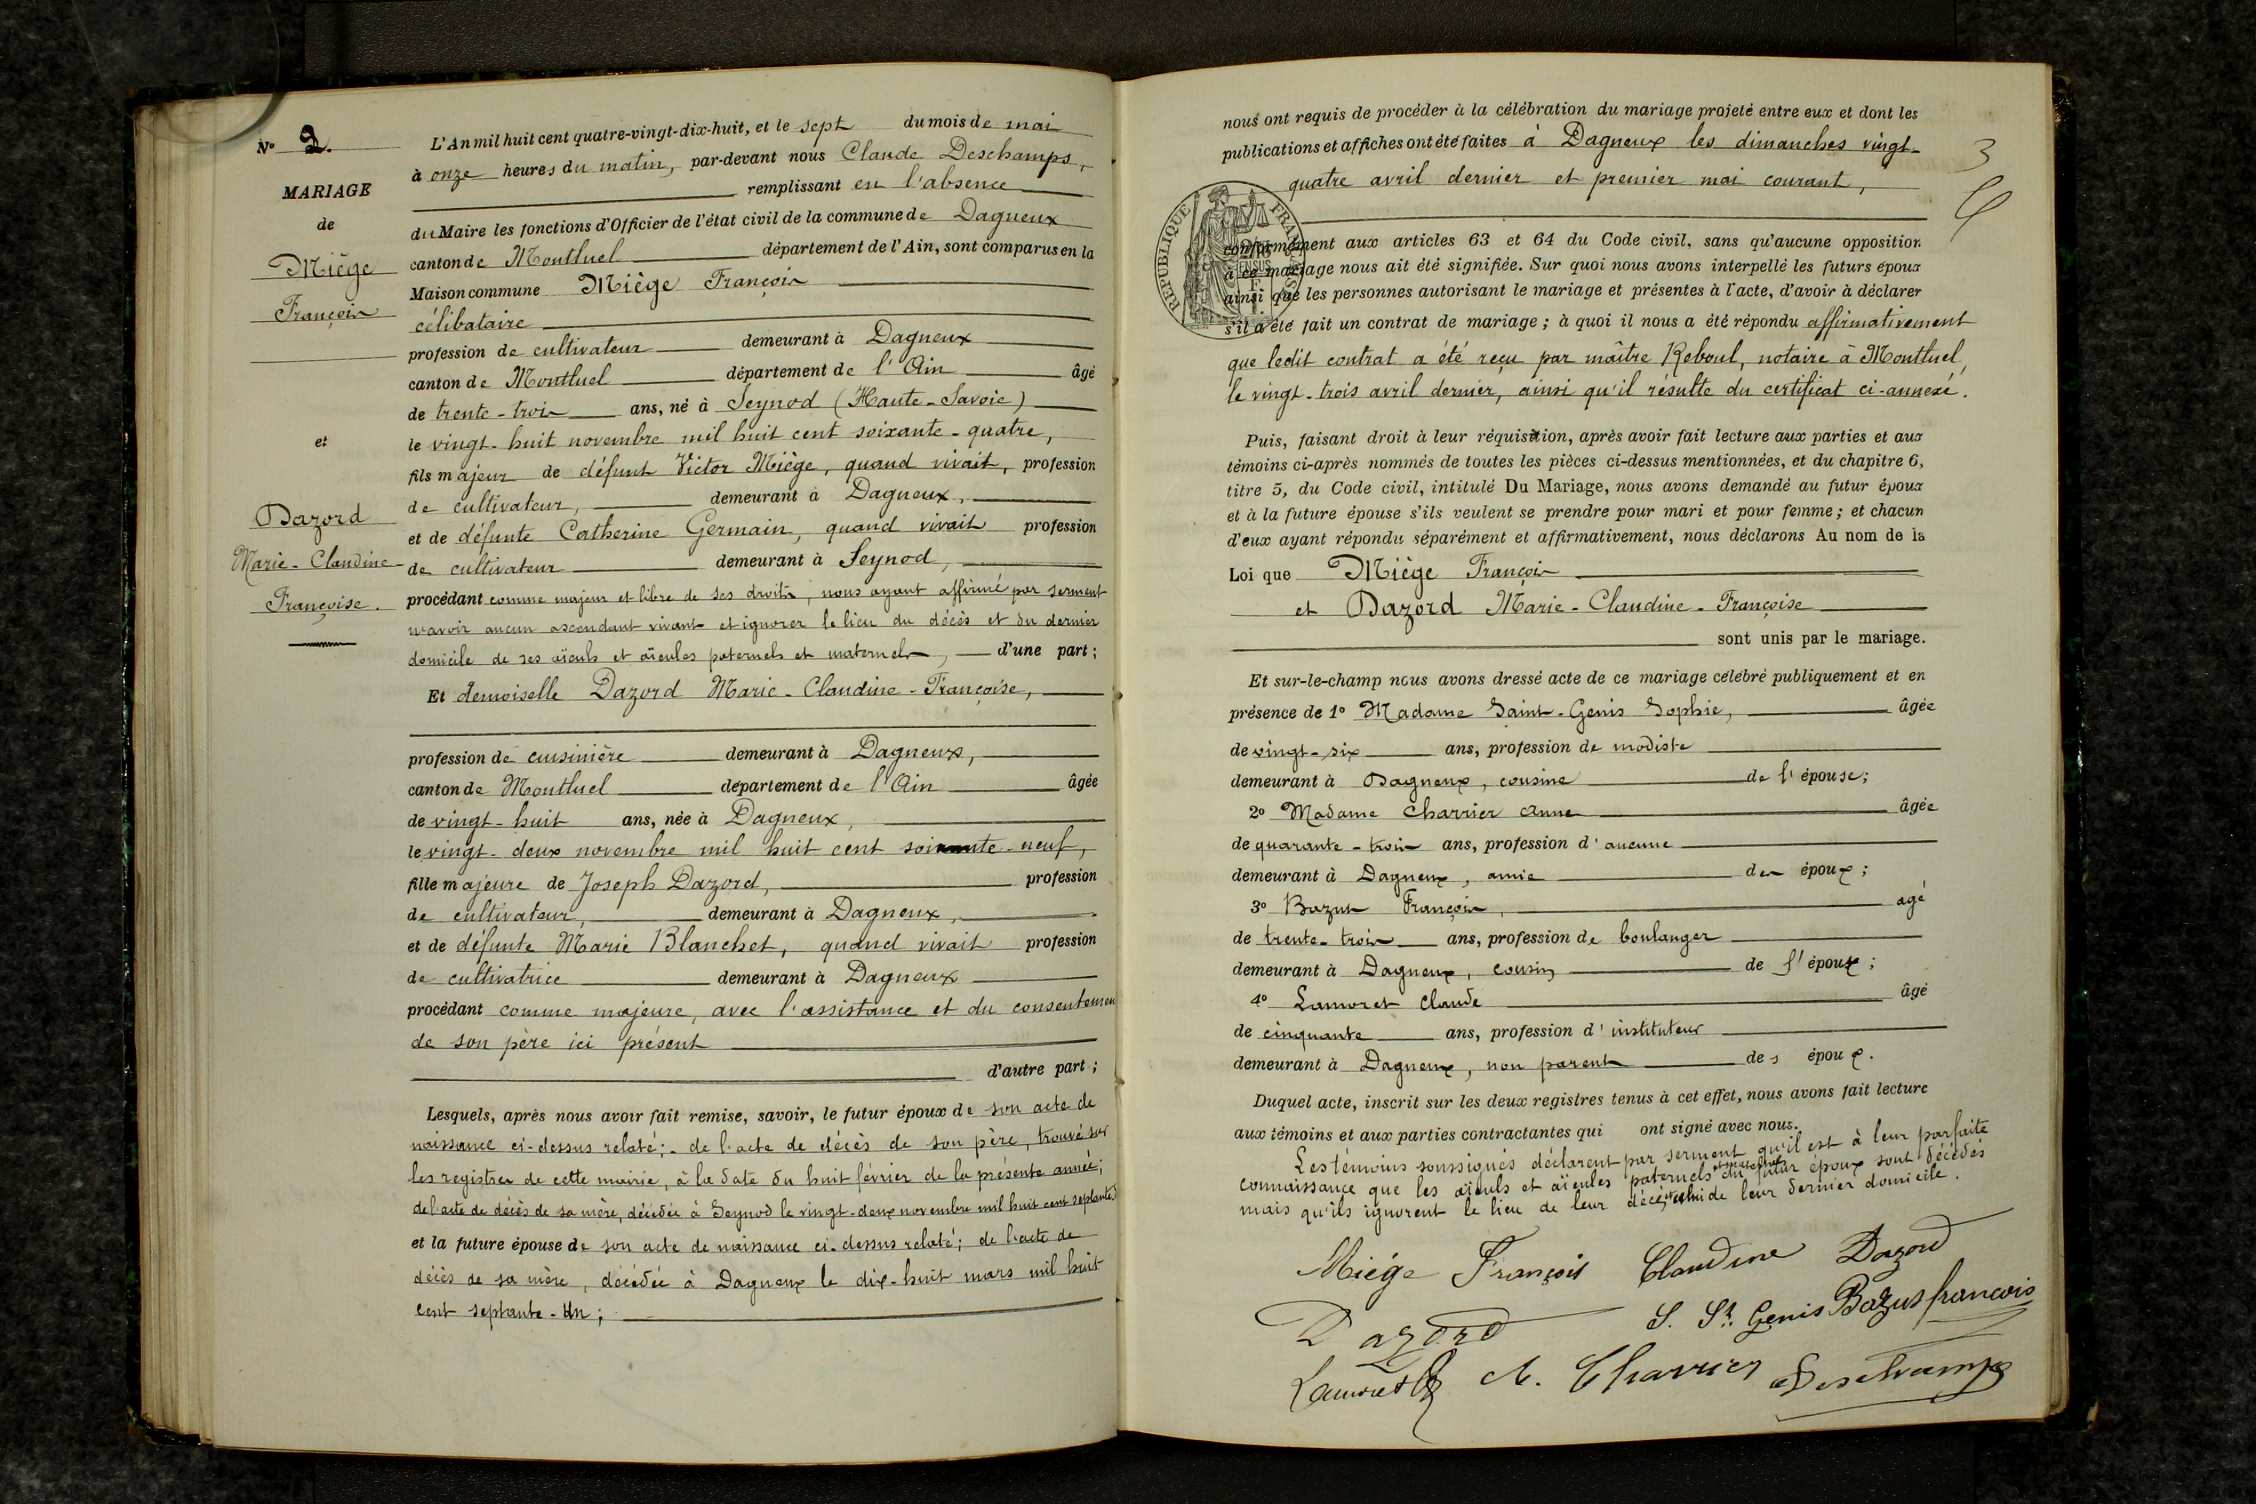 Nº 2.
MARIAGE
de
Miège
François
et
Dazord
Marie-Claudine-
Françoise.
L'An mil huit cent quatre-vingt-dix-huit, et le sept du mois de mai
à onze heures du matin, par-devant nous Claude Deschamps,
remplissant en l'absence
du Maire les fonctions d'Officier de l'état civil de la commune de Dagneux
canton de Montluel département de l'Ain, sont comparus en la
Maison commune Miège François
célibataire
profession de cultivateur demeurant à Dagneux
canton de Montluel département de l'Ain âgé
de trente-trois ans, né à Seynod (Haute-Savoie)
le vingt-huit novembre mil huit cent soixante-quatre,
fils majeur de défunt Victor Miège, quand vivait, profession
de cultivateur, demeurant à Dagneux,
et de défunte Catherine Germain, quand vivait profession
de cultivateur demeurant à Seynod,
procédant comme majeur et libre de ses droits, nous ayant affirmé par serment
n'avoir aucun ascendant vivant et ignorer le lieu du décès et du dernier
domicile de ses aïeuls et aïeules paternels et maternels, d'une part;
Et demoiselle Dazord Marie-Claudine-Françoise,
profession de cuisinière demeurant à Dagneux,
canton de Montluel département de l'Ain âgée
de vingt-huit ans, née à Dagneux,
le vingt-deux novembre mil huit cent soixante-neuf,
fille majeure de Joseph Dazord, profession
de cultivateur, demeurant à Dagneux,
et de défunte Marie Blanchet, quand vivait profession
de cultivatrice demeurant à Dagneux
procédant comme majeure, avec l'assistance et du consentemen
de son père ici présent
d'autre part;
Lesquels, après nous avoir fait remise, savoir, le futur époux de son acte de
naissance ci-dessus relaté;- de l'acte de décès de son père, trouvé sur
les registres de cette mairie, à la date du huit février de la présente année;
de l'acte de décès de sa mère, décédée à Seynod le vingt-deux novembre mil huit cent septante;
et la future épouse de son acte de naissance ci-dessus relaté; de l'acte de
décès de sa mère, décédée à Dagneux le dix-huit mars mil huit
cent septante-un;
3
nous ont requis de procéder à la célébration du mariage projeté entre eux et dont les
publications et affiches ont été faites à Dagneux les dimanches vingt-
quatre avril dernier et premier mai courant,
RÉPUBLIQUE FRANÇAISE
conformément aux articles 63 et 64 du Code civil, sans qu'aucune opposition
à ce mariage nous ait été signifiée. Sur quoi nous avons interpellé les futurs époux
ainsi que les personnes autorisant le mariage et présentes à l'acte, d'avoir à déclarer
s'il a été fait un contrat de mariage; à quoi il nous a été répondu affirmativement
que ledit contrat a été reçu par maître Reboul, notaire à Montluel,
le vingt-trois avril dernier, ainsi qu'il résulte du certificat ci-annexé.
Puis, faisant droit à leur réquisition, après avoir fait lecture aux parties et aux
témoins ci-après nommés de toutes les pièces ci-dessus mentionnées, et du chapitre 6,
titre 5, du Code civil, intitulé Du Mariage, nous avons demandé au futur époux
et à la future épouse s'ils veulent se prendre pour mari et pour femme; et chacun
d'eux ayant répondu séparément et affirmativement, nous déclarons Au nom de la
Loi que Miège François
et Dazord Marie-Claudine-Françoise
sont unis par le mariage.
Et sur-le-champ nous avons dressé acte de ce mariage célébré publiquement et en
présence de 1º Madame Saint-Genis Sophie, âgée
de vingt-six ans, profession de modiste
demeurant à Dagneux, cousine de l'épouse;
2º Madame Charrier Anne âgée
de quarante-trois ans, profession d'aucune
demeurant à Dagneux, amie des époux;
3º Bazus François, âgé
de trente-trois ans, profession de boulanger
demeurant à Dagneux, cousin de l'époux;
4º Lamoret Claude âgé
de cinquante ans, profession d'instituteur
demeurant à Dagneux, non parent des époux.
Duquel acte, inscrit sur les deux registres tenus à cet effet, nous avons fait lecture
aux témoins et aux parties contractantes qui ont signé avec nous.
Les témoins soussignés déclarent par serment qu'il est à leur parfaite
connaissance que les aïeuls et aïeules paternels et maternels du futur époux sont décédés
mais qu'ils ignorent le lieu de leur décès et celui de leur dernier domicile.
Miége François Claudine Dazord
Dazord S. St. Genis Bazus francois
Lamoret A. Charrier Deschamps